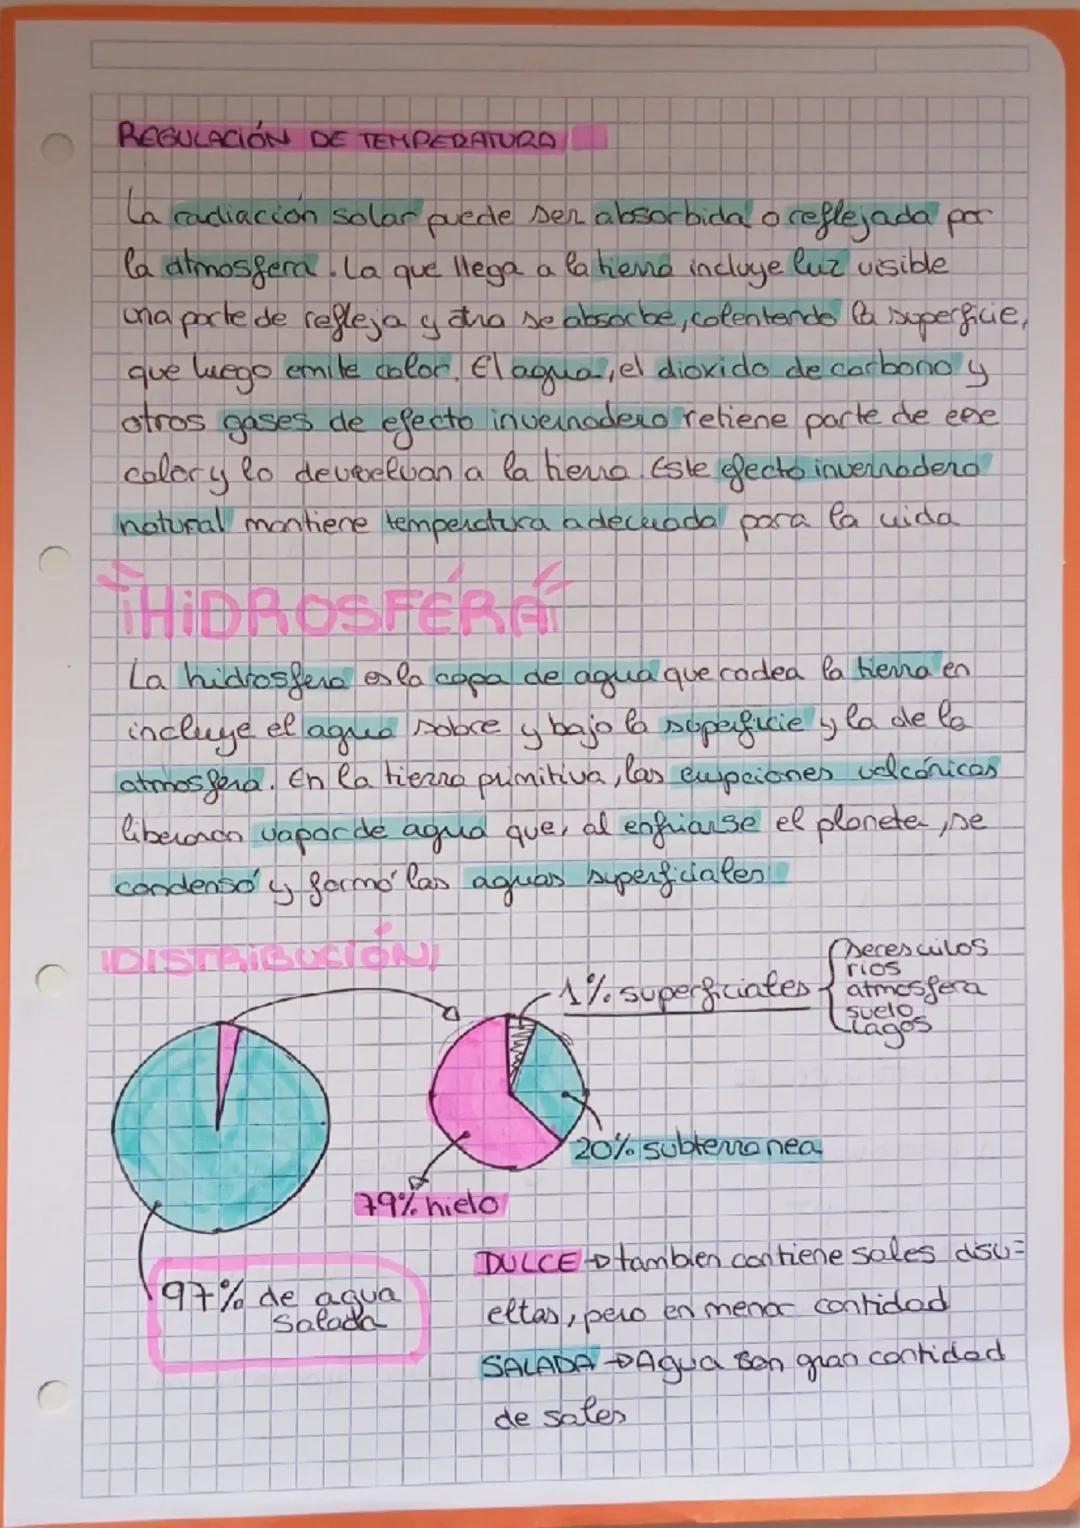 REGULACIÓN DE TEMPERATURA
La radiación solar puede ser absorbida o reflejada por
la atmosfera. La que llega a la tierra incluye luz visible
una parte de refleja y otra se absorbe, calentando la superficie,
que luego emite calor. El agua, el dioxido de carbono y
otros gases de efecto invernadero retiene parte de ese
calor y lo devuelvan a la tierra. Este efecto invernadero
natural mantiene temperatura adecuada para la vida
¡HiDROSFERA!
La hidrosfera es la capa de agua que rodea la tierra en
incluye el agua sobre y bajo la superficie y la de la
atmosfera. En la tierra primitiva, las erupciones volcánicas
liberaron vapor de agua que, al enfriarse el planeta, se
condensó y formó las aguas superficiales
¡DISTRiBUCiÓN!
1% superficiales
seres vivos
rios
atmosfera
suelo
Lagos
20% subterranea
79% hielo
97% de agua
Salada
DULCE → tambien contiene sales disu=
eltas, pero en menor cantidad
SALADA → Agua con gran cantidad
de sales